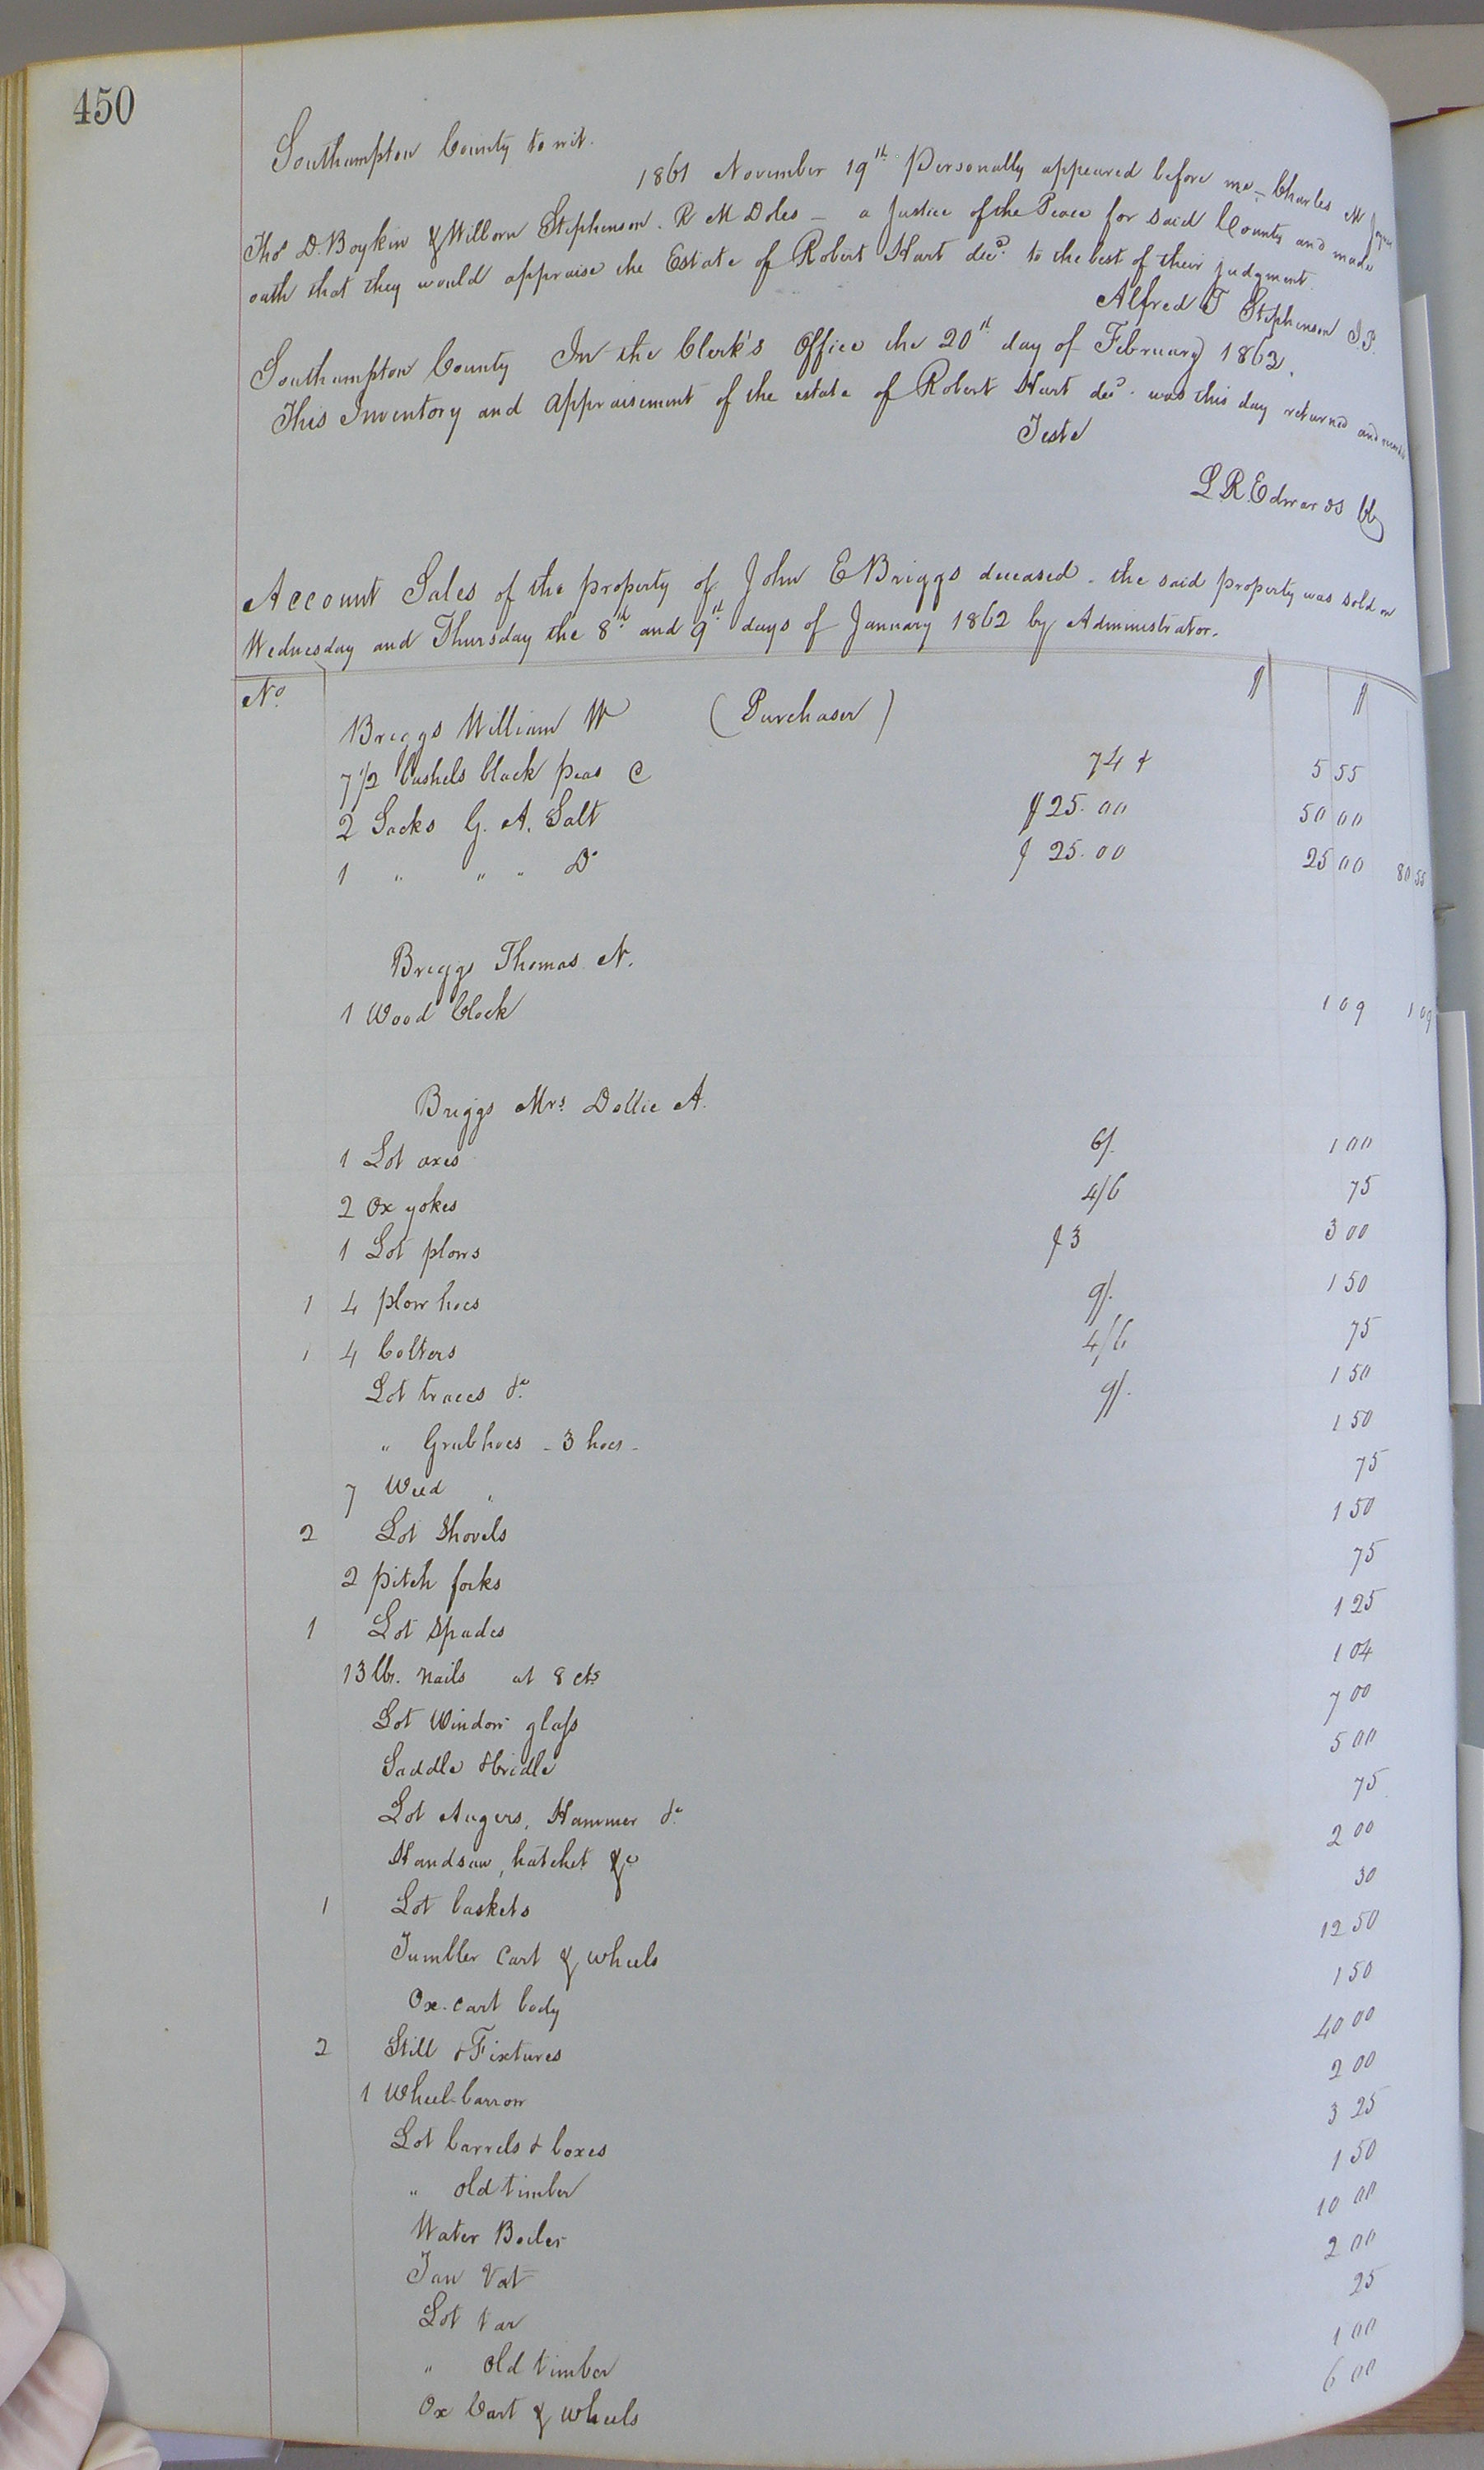 450
Southampton County to wit.
1861 November 19th Personally appeared before me - Charles M
Thos D. Boykin & Wilborn Stephenson. R M Doles - a Justice of the Peace for said County and made
oath that they would appraise the Estate of Robert Hart decd. to the best of their judgment.
Alfred T Stephenson J.P.
Southampton County In the Clerk's Office the 20th day of February 1862.
This Inventory and appraisement of the estate of Robert Hart decd. was this day returned and
Teste
L. R. Edwards Clk
Account Sales of the property of John E Briggs deceased. the said property was sold on
Wednesday and Thursday the 8th and 9th days of January 1862 by Administrator.
No.
Briggs William W (Purchaser)
7 1/2 bushels black peas @ 74 5 55
2 Sacks G. A. Salt $25.00 50 00
1 " " " Do $25.00 25 00 80 55
Briggs Thomas N.
1 Wood Clock 1 09 1 09
Briggs Mrs. Dollie A.
1 Lot axes 6/. 1 00
2 Ox yokes 4/6 75
1 Lot plows $3 3 00
1 4 plow hoes 9/. 1 50
1 4 Colters 4/6 75
Lot traces &c 9/. 1 50
" Grubhoes - 3 hoes - 1 50
7 Weed " 75
2 Lot Shovels 1 50
2 pitch forks 75
1 Lot Spades 1 25
13 lbs. nails at 8 cts 1 04
Lot Window glass 7 00
Saddle & bridle 5 00
Lot Augers, Hammer &c 75
Handsaw, hatchet &c 2 00
1 Lot baskets 30
Tumbler Cart & wheels 12 50
Ox-cart body 1 50
2 Still & Fixtures 40 00
1 Wheel-barrow 2 00
Lot barrels & boxes 3 25
" old timber 1 50
Water Boiler 10 00
Tan Vat 2 00
Lot tar 25
" old timber 1 00
Ox Cart & wheels 6 00